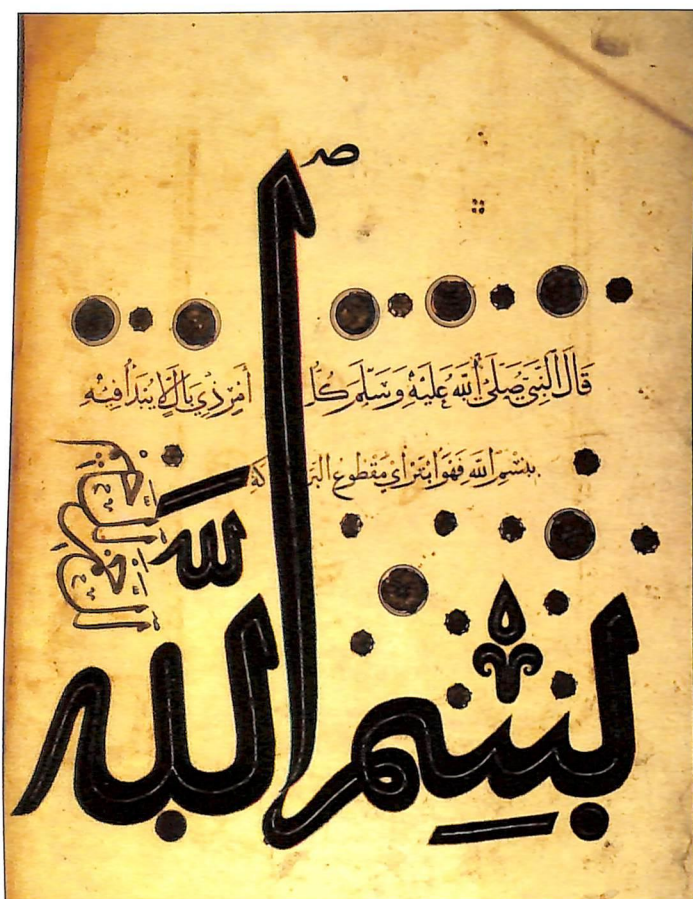 قَالَ النَّبِيُّ صَلَّى اللَّهُ عَلَيْهِ وَسَلَّمَ كُلُّ أَمْرٍ ذِي بَالٍ لَا يُبْدَأُ فِيهِ
بِبِسْمِ اللَّهِ فَهُوَ أَبْتَرُ أَيْ مَقْطُوعُ الْبَرَكَةِ
بِسْمِ اللَّهِ
الرَّحْمَنِ الرَّحِيمِ